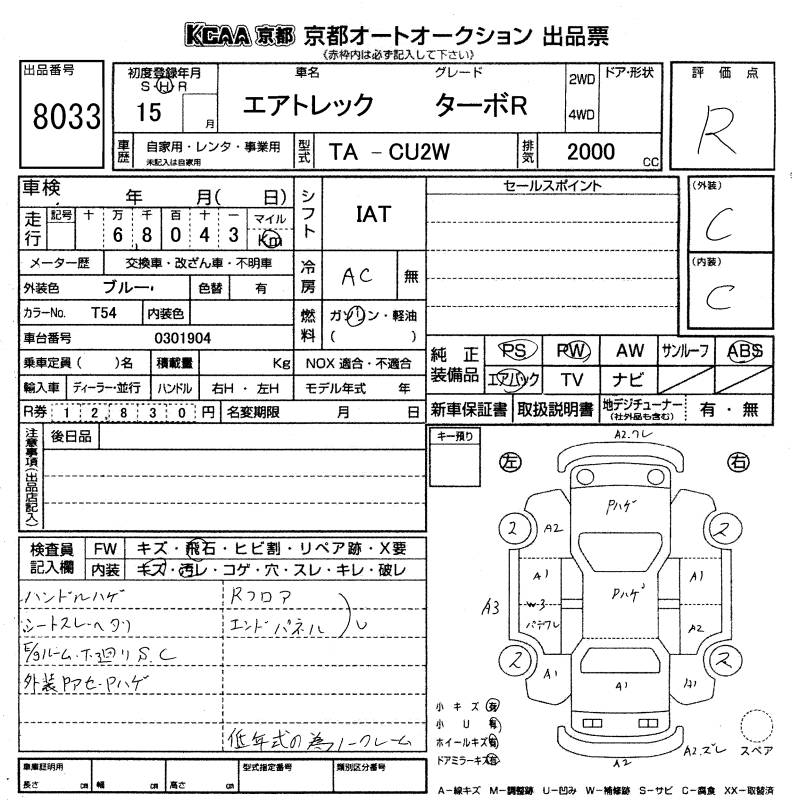 KCAA 京都 京都オートオークション 出品票
(赤枠内は必ず記入して下さい)
出品番号
8033
初度登録年月
S・H・R
15 月
車名 グレード
エアトレック ターボR
2WD
4WD
ドア・形状
車歴 自家用・レンタ・事業用
未記入は自家用
型式 TA - CU2W
排気 2000 CC
評価点
R
(外装)
C
(内装)
C
車検 年 月( 日)
走行 記号 十 万 千 百 十 一 マイル
6 8 0 4 3 Km
メーター歴 交換車・改ざん車・不明車
外装色 ブルー 色替 有
カラーNo. T54 内装色
車台番号 0301904
乗車定員( )名 積載量 Kg
輸入車 ディーラー・並行 ハンドル 右H・左H
R券 12830円 名変期限 月 日
シフト IAT
冷房 AC 無
燃料 ガソリン・軽油
( )
NOX 適合・不適合
モデル年式 年
セールスポイント
純正装備品 PS PW AW サンルーフ ABS
エアバック TV ナビ
新車保証書 取扱説明書 地デジチューナー
(社外品も含む)
有・無
注意事項(出品店記入)
後日品
キー預り
検査員記入欄
FW キズ・飛石・ヒビ割・リペア跡・X要
内装 キズ・汚レ・コゲ・穴・スレ・キレ・破レ
ハンドルハゲ Rフロア
シートスレ・ヘタリ エンドパネル U
E/gルーム・下廻りS.C
外装Pアセ・Pハゲ
低年式の為ノークレーム
左 右
A2.ワレ
Pハゲ
2 A2 2
A1 Pハゲ A1
A3 W3
パテワレ A2
2 A1 A1 A1 2
A2 A2.ズレ
小キズ 有
小U 有
ホイールキズ 有
ドアミラーキズ 有
スペア
車庫証明用
長さ cm 幅 cm 高さ cm
型式指定番号
類別区分番号
A-線キズ M-調整跡 U-凹み W-補修跡 S-サビ C-腐食 XX-取替済